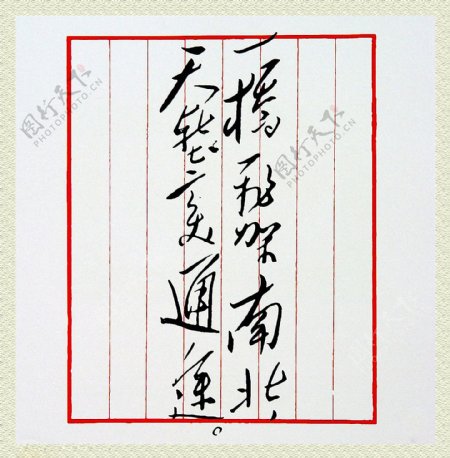 一橋飛架南北，
天塹变通途。
图行天下
PHOTOPHOTO.CN
图行天下
PHOTOPHOTO.CN